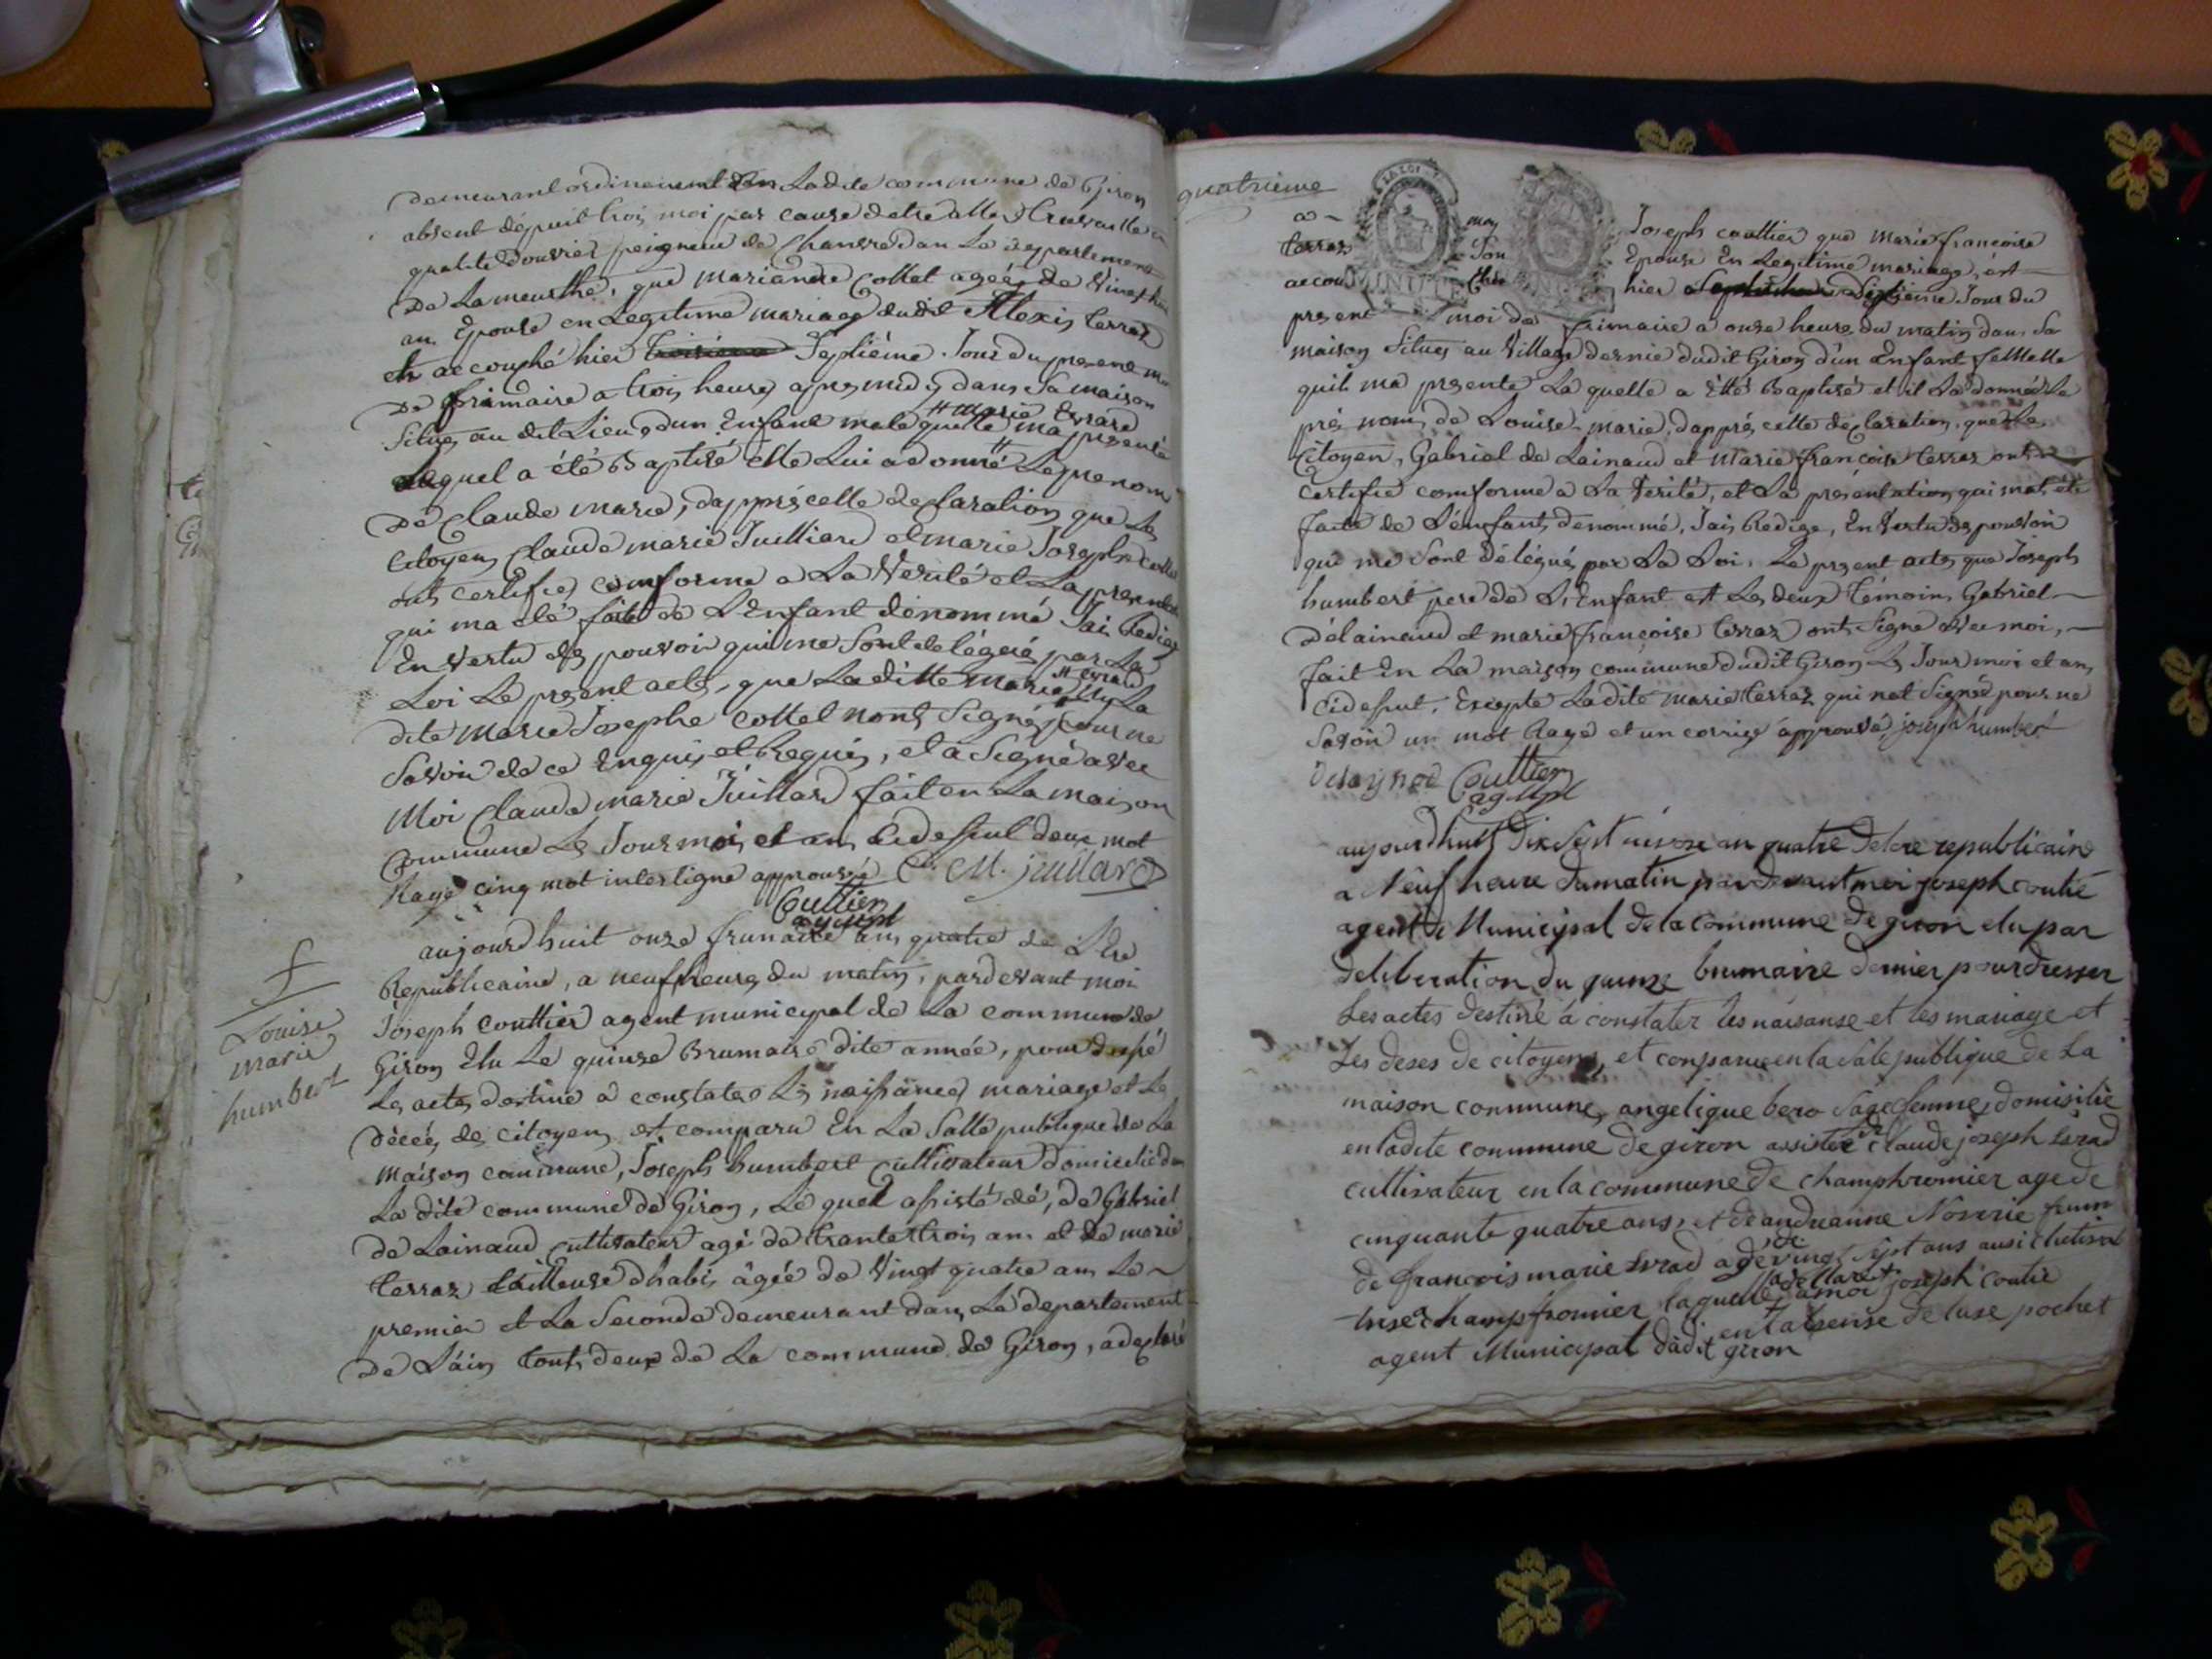 demeurant ordinairement dans Ladite commune de Giron
absent dépuit trois moi par cause detre aller travaille en
qualité douvrier peigneur de Chanvre dan Le departement
De La meurthe, que mariandré Collet agée de Vingt huit
an Epouse en Legitime mariage dudit Alexis terraz
et accouché hier troisieme Septiéme Jour du present moi
De frimaire a trois heures apres midi dans Sa maison
Situes au dit Lieu, dun Enfant male quelle ma presenté
# marie Evrard
Lequel a été Baptisé Elle Lui a donné Le prenom
De Claude marie, dapprés cette declaration que Le
Citoyen Claude marie Juilliard et marie Josephe Collet
ont certifies comforme a La Verité et La presentation
qui ma été faite de L'Enfant dénommé Jai Rediges
En Vertu des pouvoir qui me Sont delégué par La
Loi Le present acte, que Laditte marie # et La
# evrard
dite marie Josephe Collet nont Signé pour ne
Savoir de ce Enquis et Requis, et a Signé avec
Moi Claude marie Juillard fait en La maison
Commune Les Jour moi et an cidessut deux mot
Rayé cinq mot interligne approuvé C. M. juillard
Couttier
ag mpl
f
Louise
marie
humbert
aujourdhuit onze frimaire an quatre de L'Ere
Republicaine, a neuf heures du matin, pardevant moi
Joseph Couttier agent municipal de La commune de
Giron Elu Le quinze Brumaire dite année, pour dressé
Les actes destiné a constater Les naissances mariage et Le
Décés de citoyen et comparu En La Salle publique de La
maison commune, Joseph humbert Cultivateur domicilié dan
La dite commune de Giron, Le quel assisté dé, de Gabriel
de Lainaud Cultivateur agé de trante trois an et de marie
terraz tailleuse dhabis âgée de Vingt quatre an Le
premier et La Seconde demeurant dans Le departement
De L'ain tout deux de La commune de Giron, a declaré
quatrième
a
terraz
accou
MINUTE
moy
Son
Joseph couttier que marie françoise
Epouse En Legitime mariage, est
hier dixieme Jour du
present moi de frimaire a onze heure du matin dans Sa
maison Situes au Village dernie dudit Giron d'un Enfant femelle
quil ma presente La quelle a Etté Baptisé et il La donné Le
pré nom de Louise marie, dapprés cette declaration que Le
Citoyen, Gabriel de Lainaud et Marie françoise terraz ont
certifie comforme a La Verité, et La présentation qui mat été
faite de L'énfant denommé, Jai Rédige, En Vertu des pouvoir
qui me Sont délégué par La Loi, Le present acte que Joseph
humbert pere de L'Enfant et Les deux temoin Gabriel
Délainaud et marie françoise terraz ont Signe avec moi,
fait En La maison commune dudit Giron Les Jour moi et an
cidessut, Excepte Ladite marie terraz qui nat Signé pour ne
Savoir un mot Rayé et un corrigé approuvé, joseph humbert
delaynod Couttier
ag mpl
aujourdhuit Dix Sept nivose an quatre de lere republicaine
a Neuf heure du matin par devant moi joseph coutié
agent Municipal de la commune de giron elu par
deliberation du quinze brumaire dernier pour dresser
Les actes destiné a constater les naisanse et les mariage et
Les deses de citoyens, et conparue en la sale publique de La
maison commune, angelique bero Sage femme, domisilie
en ladite commune de giron assistée de claude joseph Evrad
cultivateur en la commune de champhromier age de
cinquante quatre ans, et de andreanne Noverie famm
de francois marie Evrad agé de vingt sept ans ausi cultiva
trise a champfromier laquelle a declaré a moi joseph coutie
agent Municipal dudit giron en labsense de luse pochet